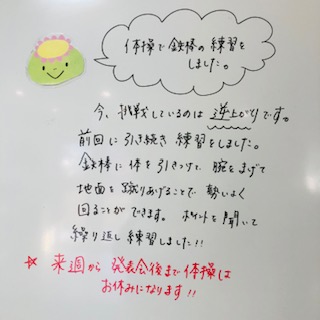 体操で鉄棒の練習を
しました。
今、挑戦しているのは逆上がりです。
前回に引き続き練習をしました。
鉄棒に体を引きつけて腕をまげて
地面を蹴りあげることで勢いよく
回ることができます。ポイントを聞いて
繰り返し練習しました!!
☆来週から発表会後まで体操は
お休みになります!!